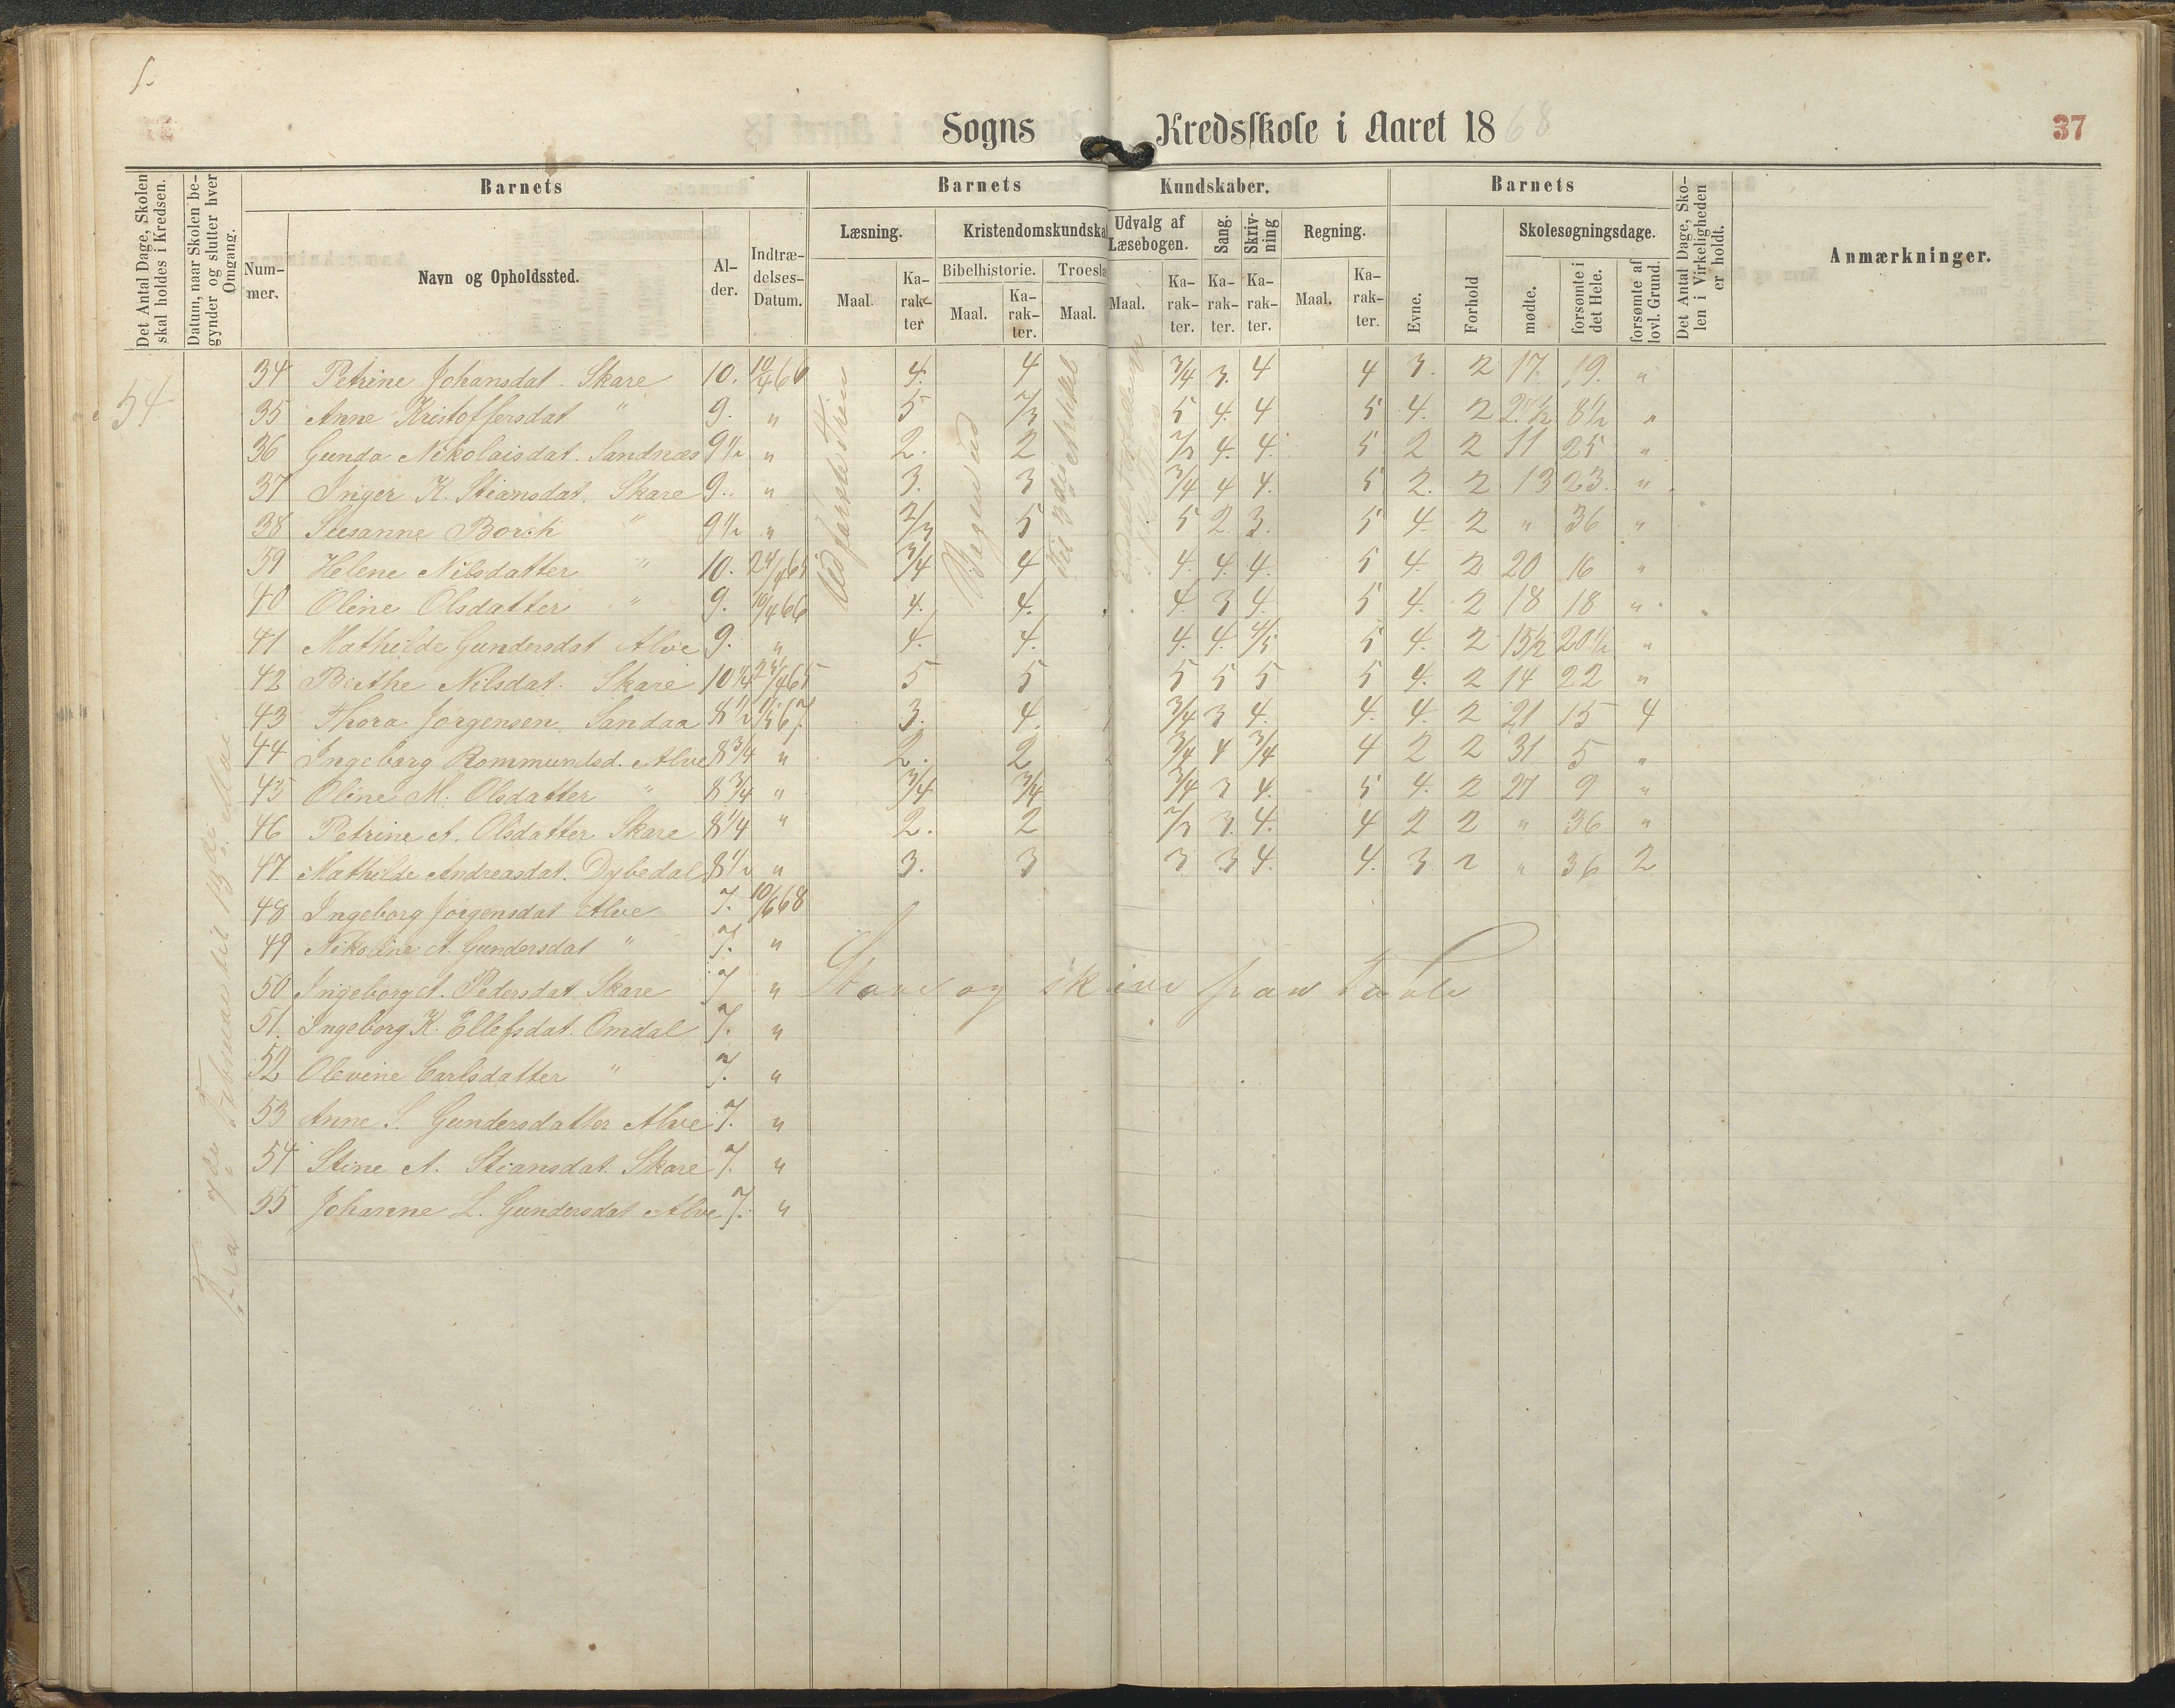 Sogns Kredsskole i Aaret 1868
37
Det Antal Dage, Skolen skal holdes i Kredsen.
Datum, naar Skolen begynder og slutter hver Omgang.
Barnets
Barnets Kundskaber.
Barnets
Det Antal Dage, Skolen i Virkeligheden er holdt.
Anmærkninger.
Nummer.
Navn og Opholdssted.
Alder.
Indtrædelses-Datum.
Læsning.
Kristendomskundska
Udvalg af Læsebogen.
Sang.
Skrivning
Regning.
Evne.
Forhold
Skolesøgningsdage.
Maal.
Karakter
Bibelhistorie.
Maal.
Karakter.
Troesla
Maal.
Maal.
Karakter.
Karakter.
Karakter.
Maal.
Karakter.
mødte.
forsømte i det Hele.
forsømte af lovl. Grund.
54
34 Petrine Johansdat. Skare 10. 10/4 66 4. 4 3/4 3. 4 4 3. 2 17. 19. "
35 Anne Kristoffersdat " 9. " 5 2/3 5 4. 4 5 4. 2 27 1/2 8 1/2 "
36 Gunda Nikolaisdat. Sandnæs 9 1/2 " 2. 2 2/3 4. 4. 5 2 2 11 25 "
37 Inger K. Stiansdat. Skare 9. " 3. 3 3/4 4 4. 5 2. 2 13 23. "
38 Susanne Borch " 9 1/2 " 2/3 5 5 2. 3. 5 4. 2 " 36 "
39 Helene Nilsdatter " 10. 24/4 65 3/4 4 4. 4. 4. 5 4. 2 20 16 "
40 Oline Olsdatter " 9. 10/4 66 4. 4. 4. 3 4. 5 4. 2 18 18 "
41 Mathilde Gundersdat Alve 9. " 4. 4. 4. 4. 4/5 5 4. 2 15 1/2 20 1/2 "
42 Berthe Nilsdat. Skare 10 1/4 24/4 65 5 5 5 5 5 5 4. 2 14 22 "
43 Thora Jørgensen. Sandaa 8 1/2 67 3. 4. 3/4 3 4. 4. 4. 2 21 15 4
44 Ingeborg Rommundsd. Alve 8 3/4 " 2. 2 3/4 4 3/4 4 2 2 31 5 "
45 Oline M. Olsdatter " 8 3/4 " 3/4 3/4 3/4 3 4. 5 4. 2 27 9 "
46 Petrine A. Olsdatter Skare 8 1/4 " 2. 2 2/3 3. 4. 4 2 2 " 36 "
47. Mathilde Andreasdat. Dybedal 8 1/2 " 3. 3 3 3 4. 4. 3 2 " 36 2
48 Ingeborg Jørgensdat Alve 7. 10/6 68
49 Nikoline A. Gundersdat " 7. "
50 Ingeborg A. Pedersdat Skare 7 " Stave og skive paa Tavle
51. Ingeborg K. Ellefsdat. Omdal 7. "
52 Olevine Carlsdatter " 7. "
53 Anne S. Gundersdatter Alve 7. "
54 Stine A. Stiansdat. Skare 7. "
55 Johanne L. Gundersdat Alve 7. "